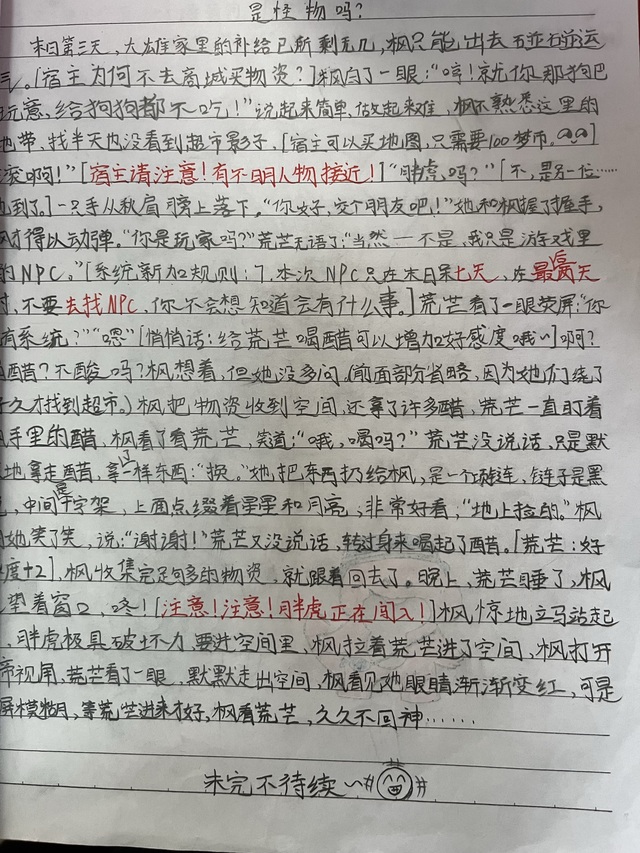 是怪物吗？
末日第三天，大雄家里的补给已所剩无几，枫只能出去碰碰运
气。[宿主为何不去商城买物资？]枫白了一眼：“哼！就你那狗巴
玩意，给狗狗都不吃！”说起来简单，做起来难，枫不熟悉这里的
地带，找半天也没看到超市影子，[宿主可以买地图，只需要100梦币。]
滚啊！”[宿主请注意！有不明人物接近！]“胖虎，吗？”[不，是另一位……
到了。]一只手从秋肩膀上落下，“你好，交个朋友吧！”她和枫握了握手，
枫才得以动弹。“你是玩家吗？”荒芒无语了：“当然——不是，我只是游戏里
的NPC。”[系统新加规则：7，本次NPC只在末日呆七天，在最后天
时，不要去找NPC，你不会想知道会有什么事。]荒芒看了一眼荧屏：“你
有系统？”“嗯”[悄悄话：给荒芒喝醋可以增加好感度哦~]啊？
醋？不酸吗？枫想着，但她没多问，（前面部分省略，因为她们绕了
好久才找到超市。）枫把物资收到空间，还拿了许多醋，荒芒一直盯着
手里的醋，枫看了看荒芒，笑道：“哦，喝吗？”荒芒没说话，只是默
地拿走醋，拿了一样东西：“换。”她把东西扔给枫，是一个项链，链子是黑
中间是十字架，上面点缀着星星和月亮，非常好看，“地上捡的。”枫
她笑了笑，说：“谢谢！”荒芒又没说话，转过身来喝起了醋。[荒芒：好
度+2]，枫收集完足够多的物资，就跟着回去了。晚上，荒芒睡了，枫
望着窗口，咚！[注意！注意！胖虎正在闯入！]枫惊地立马站起
胖虎极具破坏力，要进空间里，枫拉着荒芒进了空间，枫打开
视屏，荒芒看了一眼，默默走出空间，枫看见她眼睛渐渐变红，可是
屏模糊，等荒芒进来才好，枫看着荒芒，久久不回神……
未完不待续~